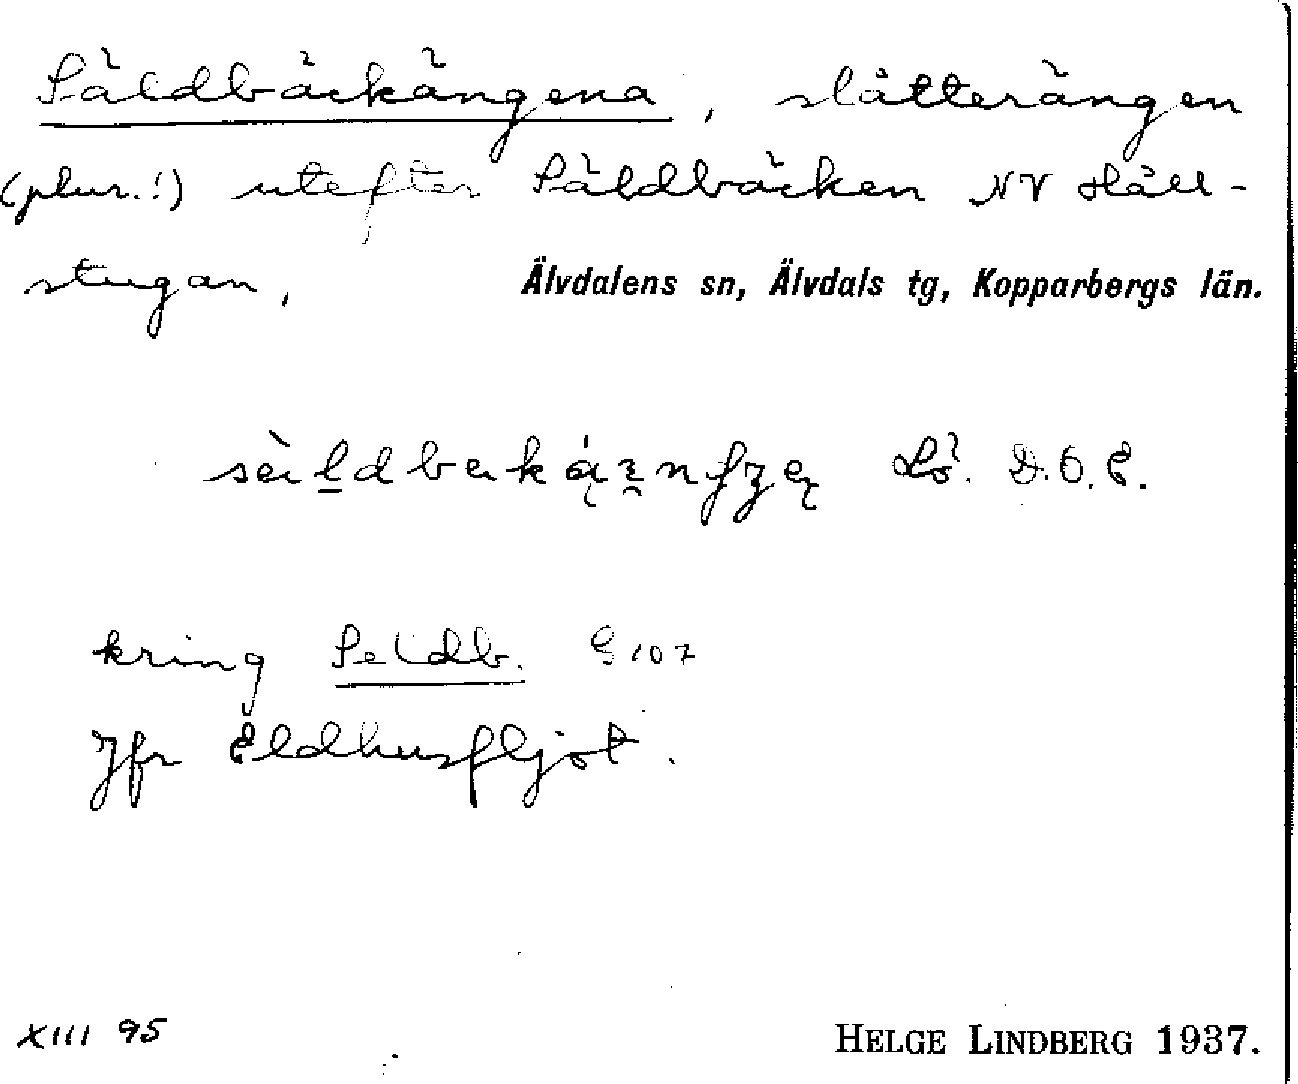 Säldbäckängena, slåtterängen
(plur.!) utefter Säldbäcken NV Häll-
stugan, Älvdalens sn, Älvdals tg, Kopparbergs län.
Lö. D.O.E.
kring Seldb. G 107
Jfr Eldhusfljöt.
XIII 95
HELGE LINDBERG 1937.